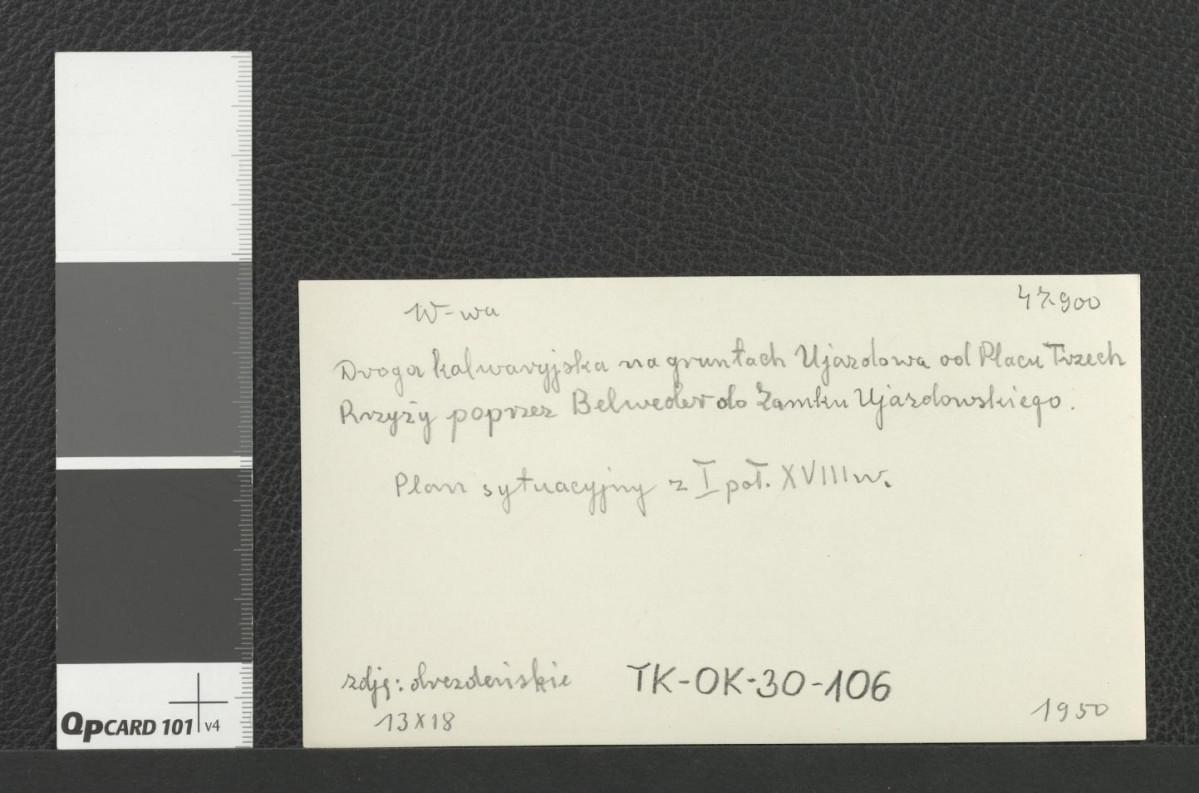 W-wa
47.900
Droga kalwaryjska na gruntach Ujazdowa od Placu Trzech
Krzyży poprzez Belweder do Zamku Ujazdowskiego.
Plan sytuacyjny z I poł. XVIII w.
zdję: drezdeńskie
TK-OK-30-106
13x18
1950
QPCARD 101 v4